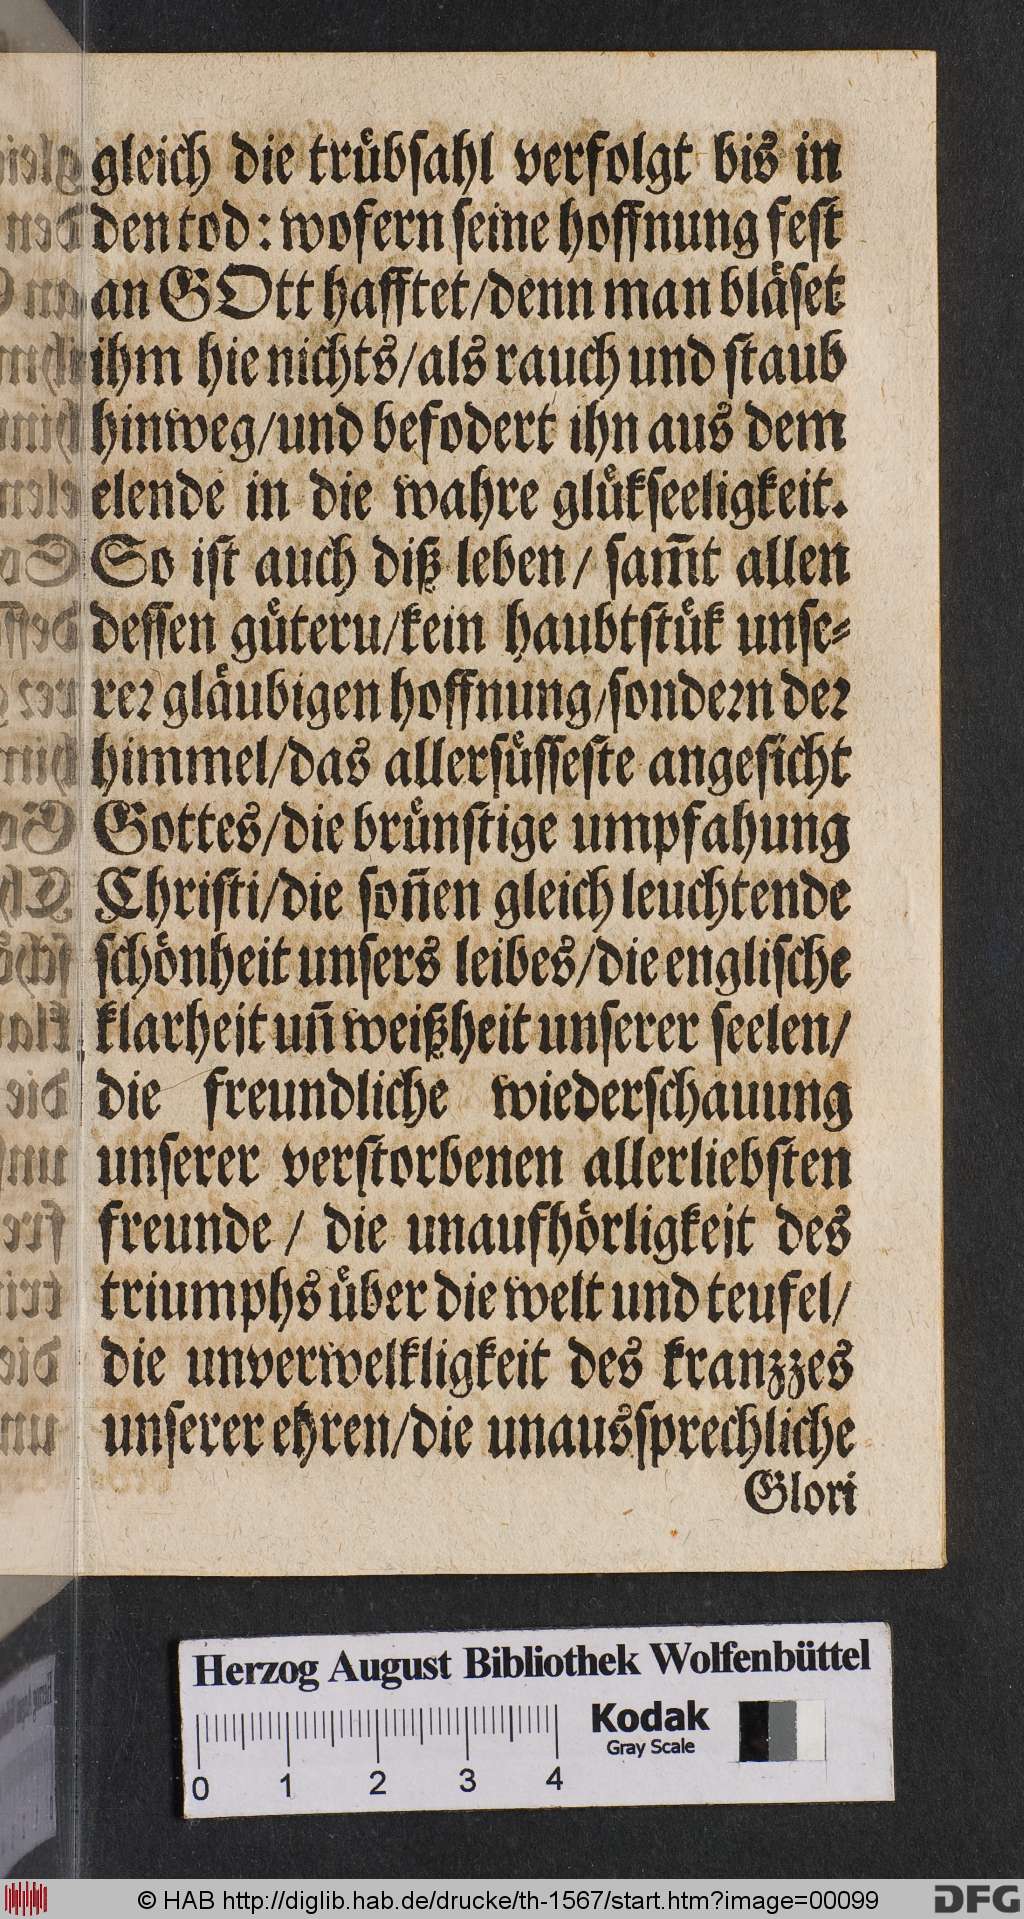 gleich die truͤbſahl verfolgt bis in
den tod: wofern ſeine hoffnung feſt
an GOtt hafftet/denn man blaͤſet
ihm hie nichts/als rauch und ſtaub
hinweg/und befodert ihn aus dem
elende in die wahre gluͤkſeeligkeit.
So iſt auch diß leben/ ſam̃t allen
deſſen guͤteru/kein haubtſtuͤk unſe⸗
rer glaͤubigen hoffnung/ſondern der
himmel/das allerſuͤſſeſte angeſicht
Gottes/die bruͤnſtige umpfahung
Chriſti/die ſon̄en gleich leuchtende
ſchoͤnheit unſers leibes/die engliſche
klarheit un̄ weißheit unſerer ſeelen/
die freundliche wiederſchauung
unſerer verſtorbenen allerliebſten
freunde / die unaufhoͤrligkeit des
triumphs uͤber die welt und teufel/
die unverwelkligkeit des kranzzes
unſerer ehren/die unausſprechliche
Glori
Herzog August Bibliothek Wolfenbüttel
Kodak
Gray Scale
0 1 2 3 4
© HAB http://diglib.hab.de/drucke/th-1567/start.htm?image=00099
DFG